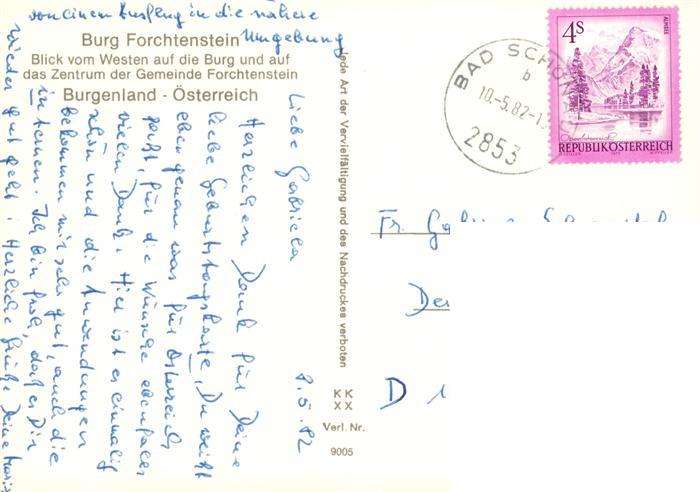 von einem Ausflug in die nähere
Umgebung
Burg Forchtenstein
Blick vom Westen auf die Burg und auf
das Zentrum der Gemeinde Forchtenstein
Burgenland - Österreich
8.5.82
Liebe Gabriela
Herzlichen Dank für Deine
liebe Geburtstagskarte. Du weißt
eben genau was für Österreich
paßt, für die Wünsche ebenfalls
vielen Dank. Hier ist es einmalig
schön und die Anwendungen
bekommen mir sehr gut, auch die
internen. Ich bin froh, daß es Dir
wieder gut geht. Herzliche Grüße Deine
Jede Art der Vervielfältigung und des Nachdruckes verboten
KK
XX
Verl. Nr.
9005
BAD SCHÖN
b
10.-5.82-1
2853
4S
ALMSEE
Oberösterreich
REPUBLIK ÖSTERREICH
Fr.
D 1